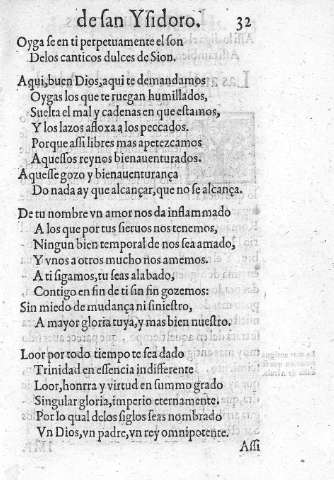 de san Ysidoro. 32
Oyga se en ti perpetuamente el son
Delos canticos dulces de Sion.
Aqui, buen Dios, aqui te demandamos
Oygas los que te ruegan humillados,
Suelta el mal y cadenas en que estamos,
Y los lazos afloxa a los peccados.
Porque assi libres mas apetezcamos
Aquessos reynos bienauenturados.
Aquesse gozo y bienauenturança
Do nada ay que alcançar, que no se alcança.
De tu nombre vn amor nos da inflammado
A los que por tus sieruos nos tenemos,
Ningun bien temporal de nos sea amado,
Y vnos a otros mucho nos amemos.
A ti sigamos, tu seas alabado,
Contigo en fin de ti sin fin gozemos:
Sin miedo de mudança ni siniestro,
A mayor gloria tuya, y mas bien nuestro.
Loor por todo tiempo te sea dado
Trinidad en essencia indifferente
Loor, honrra y virtud en summo grado
Singular gloria, imperio eternamente.
Por lo qual delos siglos seas nombrado
Vn Dios, vn padre, vn rey omnipotente.
Assi